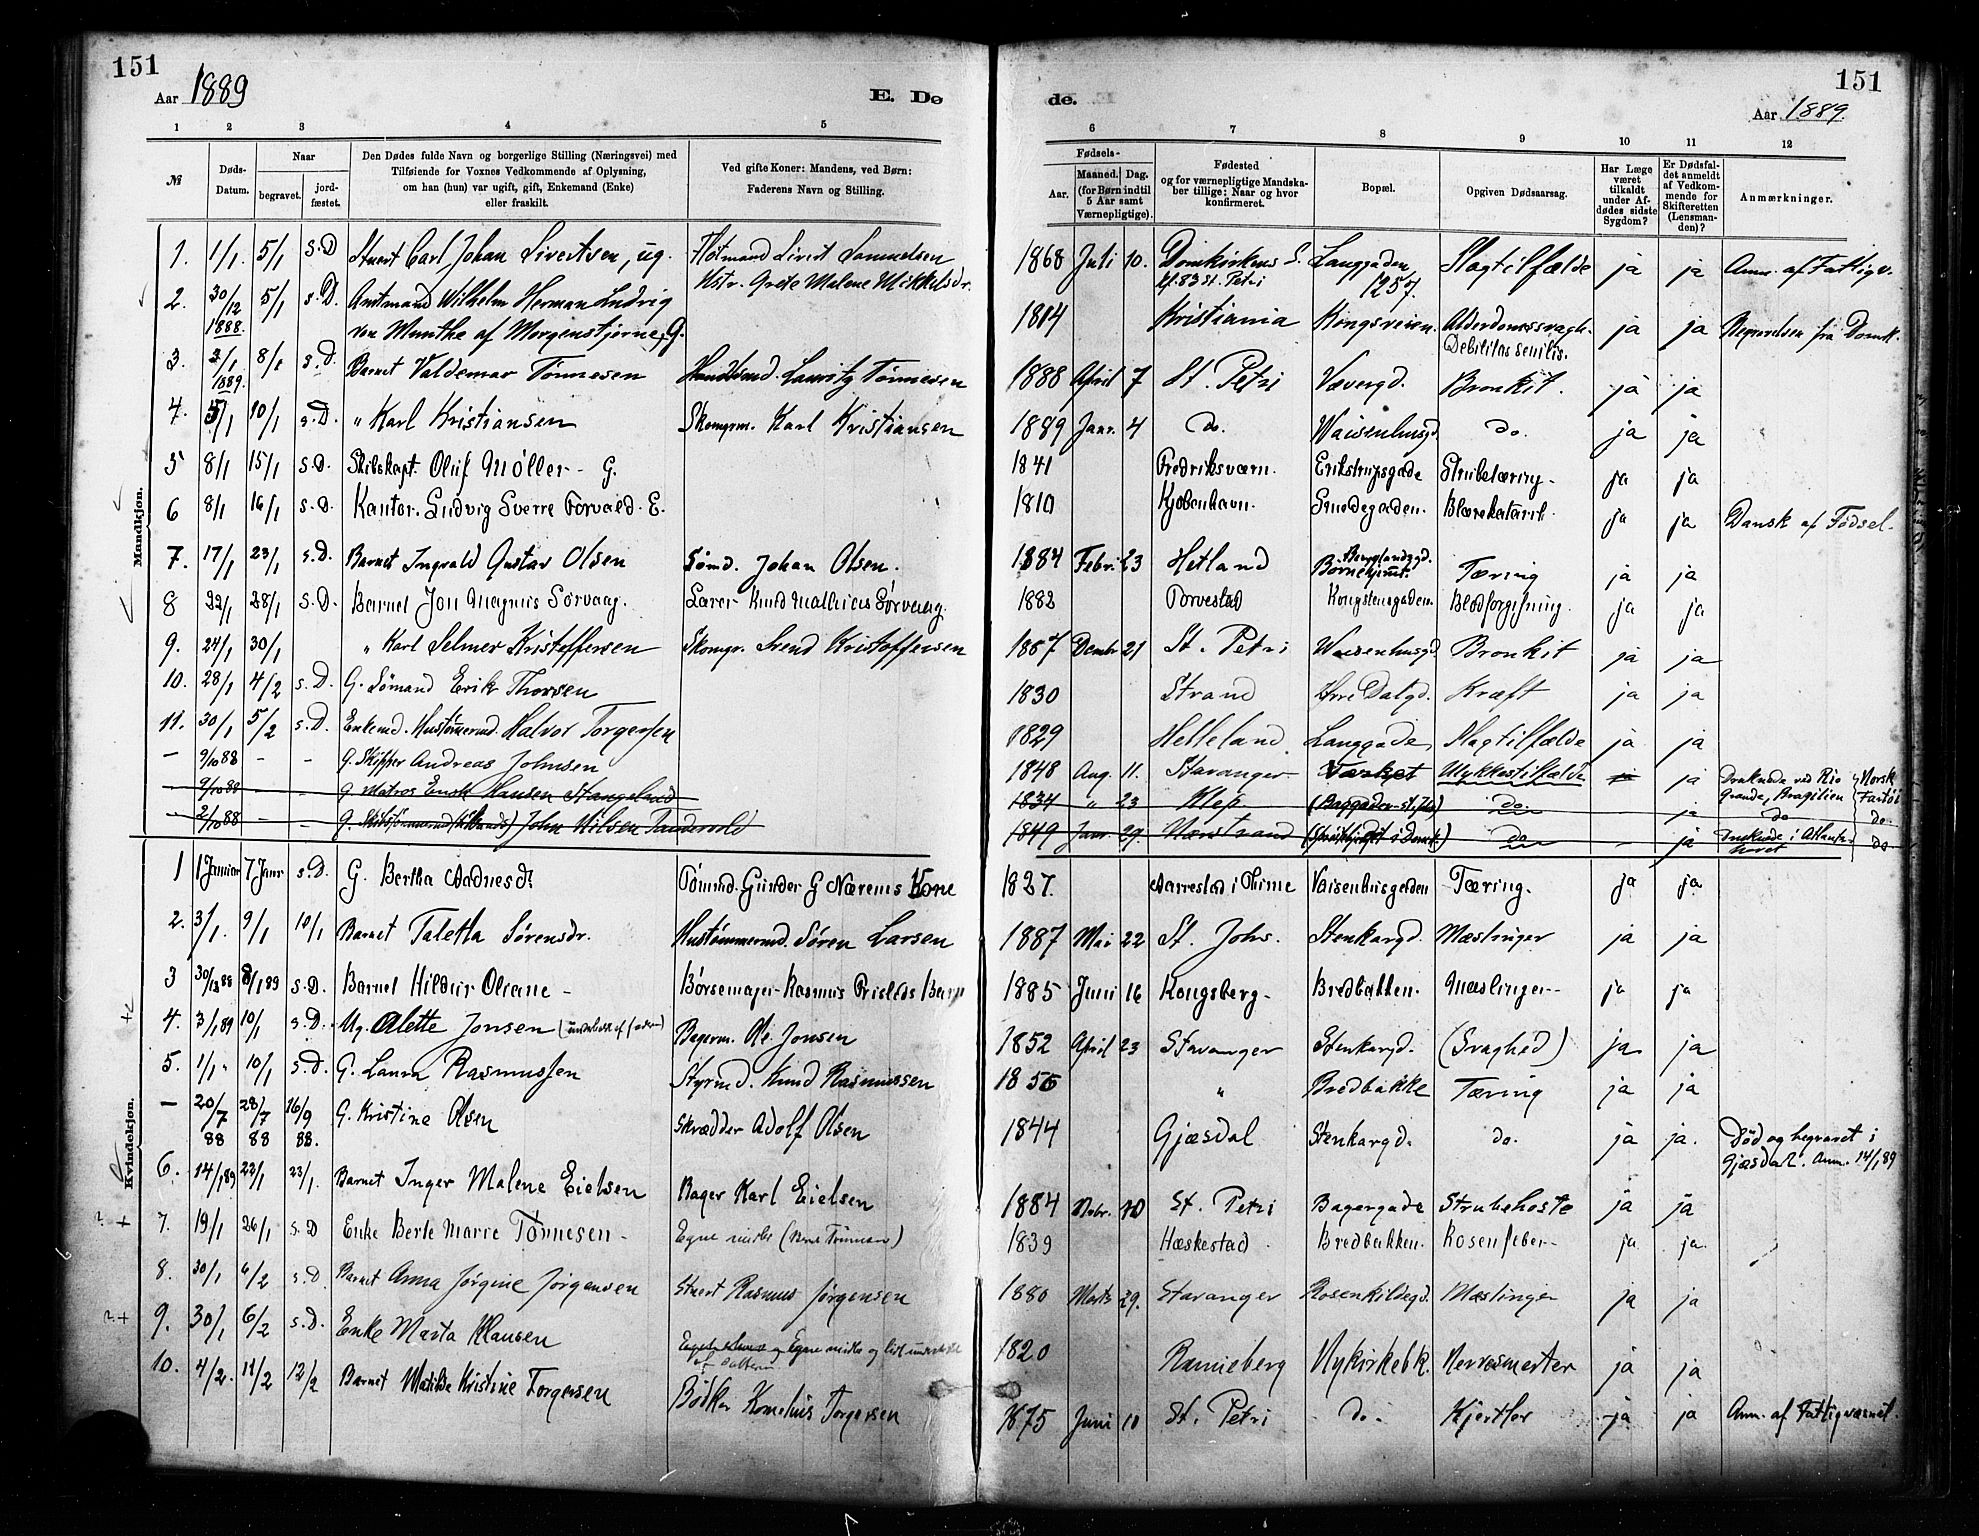 151
Aar 1889
E. Dø
1 2 3 4 5
№
Døds-Datum.
Naar
begravet.
jord-fæstet.
Den Dødes fulde Navn og borgerlige Stilling (Næringsvei) med
Tilføiende for Voxnes Vedkommende af Oplysning,
om han (hun) var ugift, gift, Enkemand (Enke)
eller fraskilt.
Ved gifte Koner: Mandens, ved Børn:
Faderens Navn og Stilling.
Mandkjøn.
1. 1/1. 5/1 s.D Stuert Carl Johan Sivertsen, ug. Flotmand Sivert Samuelsen
Hstr. Grete Malene Mikkelsdr.
2. 30/12 1888. 5/1 s.D. Amtmand Wilhelm Herman Ludvig
von Munthe af Morgenstjerne, G.
3. 3/1 1889. 8/1 s.D. Barnet Valdemar Tønnesen Handlsmd. Lauritz Tønnesen
4. 5/1 10/1 s.D. " Karl Kristiansen Skomgrm. Karl Kristiansen
5 8/1 15/1 s.D. Skibskapt. Oluf Møller - G.
6 8/1 16/1 s.D. Kantor. Ludvig Sverre Torvald. E.
7. 17/1 23/1 s.D. Barnet Ingvald Gustav Olsen Sømd. Johan Olsen.
8 22/1 28/1 s.D. Barnet Jon Magnus Sørvaag. Lærer Knud Mathias Sørvaag.
9. 24/1 30/1 " Karl Selmer Kristoffersen Skomgr. Svend Kristoffersen
10. 28/1 4/2 s.D. G. Sømand Erik Thorsen
11. 30/1 5/2 s.D. Enkemd. Hustømrmd. Halvor Torgersen
— 9/10 88 - - G. Skipper Andreas Johnsen
— 9/10 88 - - G. Matros Enok Hansen Stangeland
— 2/10 88 - - G. Skibstømrmd John Nilsen Tanderold
Kvindekjøn.
1 1 Januar 7 Janr s.D. G. Bertha Aadnesdt. Tømmd. Gunder G Nærems Kone
2. 3/1. 9/1 10/1 Barnet Taletta Sørensdr. Hustømmermd. Søren Larsen
3 30/12 88 8/1 89 s.D. Barnet Hildur Oleane - Børsemager Rasmus Prisleds Barn
4. 3/1 89 10/1 s.D. Ug. Olette Jonsen (underholdt af faderen) Bagerm. Ole Jonsen
5. 1/1 " 10/1 s.D. G. Laura Rasmussen Styrmd. Knud Rasmussen
— 20/7 88 28/7 88 16/9 88. G. Kristine Olsen Skrædder Adolf Olsen
6. 14/1 89 22/1 23/1. Barnet Inger Malene Eielsen Bager Karl Eielsen
7. 19/1 26/1 s.D Enke Berte Marie Tønnesen - Egne midler
8. 30/1 6/2 s.D. Barnet Anna Jørgine Jørgensen Stuert Rasmus Jørgensen
9. 30/1 6/2 s.D. Enke Marta Klausen Egne midler og lidt
10. 4/2. 11/2 12/2 Barnet Matilde Kristine Torgersen Bødker Kornelius Torgersen
de.
151
Aar 1889.
6 7 8 9 10 11 12
Fødsels-
Aar.
Maaned. Dag.
(for Børn indtil
5 Aar samt
Værnepligtige).
Fødested
og for værnepligtige Mandska-
ber tillige: Naar og hvor
konfirmeret.
Bopæl.
Opgiven Dødsaarsag.
Har Læge
været
tilkaldt
under Af-
dødes sidste
Sygdom?
Er Dødsfal-
det anmeldt
af Vedkom-
mende for
Skifteretten
(Lensman-
den)?
Anmærkninger.
1868 Juli 10. Domkirkens S. Langgaden Slagtilfælde ja ja Anm. af Fattigv.
kf. 83 St. Petri 1257.
1814 Kristiania Kongsveien. Alderdomssvagh. ja ja Begravelsen fra Domk.
Debilitas senilis.
1888 April 7 St. Petri Vævergd. Bronkit. ja ja
1889 Janr. 4 do. Waisenhusgd. do. ja ja
1841 Fredriksværn. Erikstrupsgade Strubetæring. ja ja
1810 Kjøbenhavn. Smedegaden. Blærekatarrh. ja ja Dansk af Fødsel.
1884 Febr. 23 Hetland Børnehjemmet. Tæring ja ja
1882 Torvestad Kongstensgaden. Blodforgiftning. ja ja
1887 Decmbr 21 St. Petri Waisenhusgd. Bronkit ja ja
1830 Strand Øvre Dalgd. Kræft ja ja
1829 Helleland Langgade Slagtilfælde ja ja
1848 Aug. 11. Stavanger Værket Ulykkestilfælde ja Druknede ved Rio Norsk
1834 " 23 Klep do. - ja Grande, Brazilien Fartøi
do do
1849 Janr. 29. do - ja Druknede i Atlanter-
havet do
1827. Aarrestad i Thime Vaisenhusgaden Tæring. ja ja
1887 Mai 22 St. Johs. Stenkargd. Mæslinger ja ja
1885 Juni 16 Kongsberg - Bredbakken. Mæslinger - ja ja
1852 April 23 Stavanger Stenkargd. (Svaghed) ja ja
1856 " Bredbakke Tæring ja ja
1844 Gjæsdal Stenkargd. do. ja ja. Død og begravet i
Gjæsdal. Anm. 14/1 89
1884 Nobr. 10 St. Petri Bagergade Strubehoste ja ja
1839 Hæskestad Bredbakken. Rosenfeber - ja ja
1880 Marts 29. Stavanger Rosenkildegd. Mæslinger ja ja
1820 Renneberg Nykirkebk. Nervesmerter ja ja
1875 Juni 11 St. Petri do. Kjertler ja ja Anm. af Fattigvæsnet.